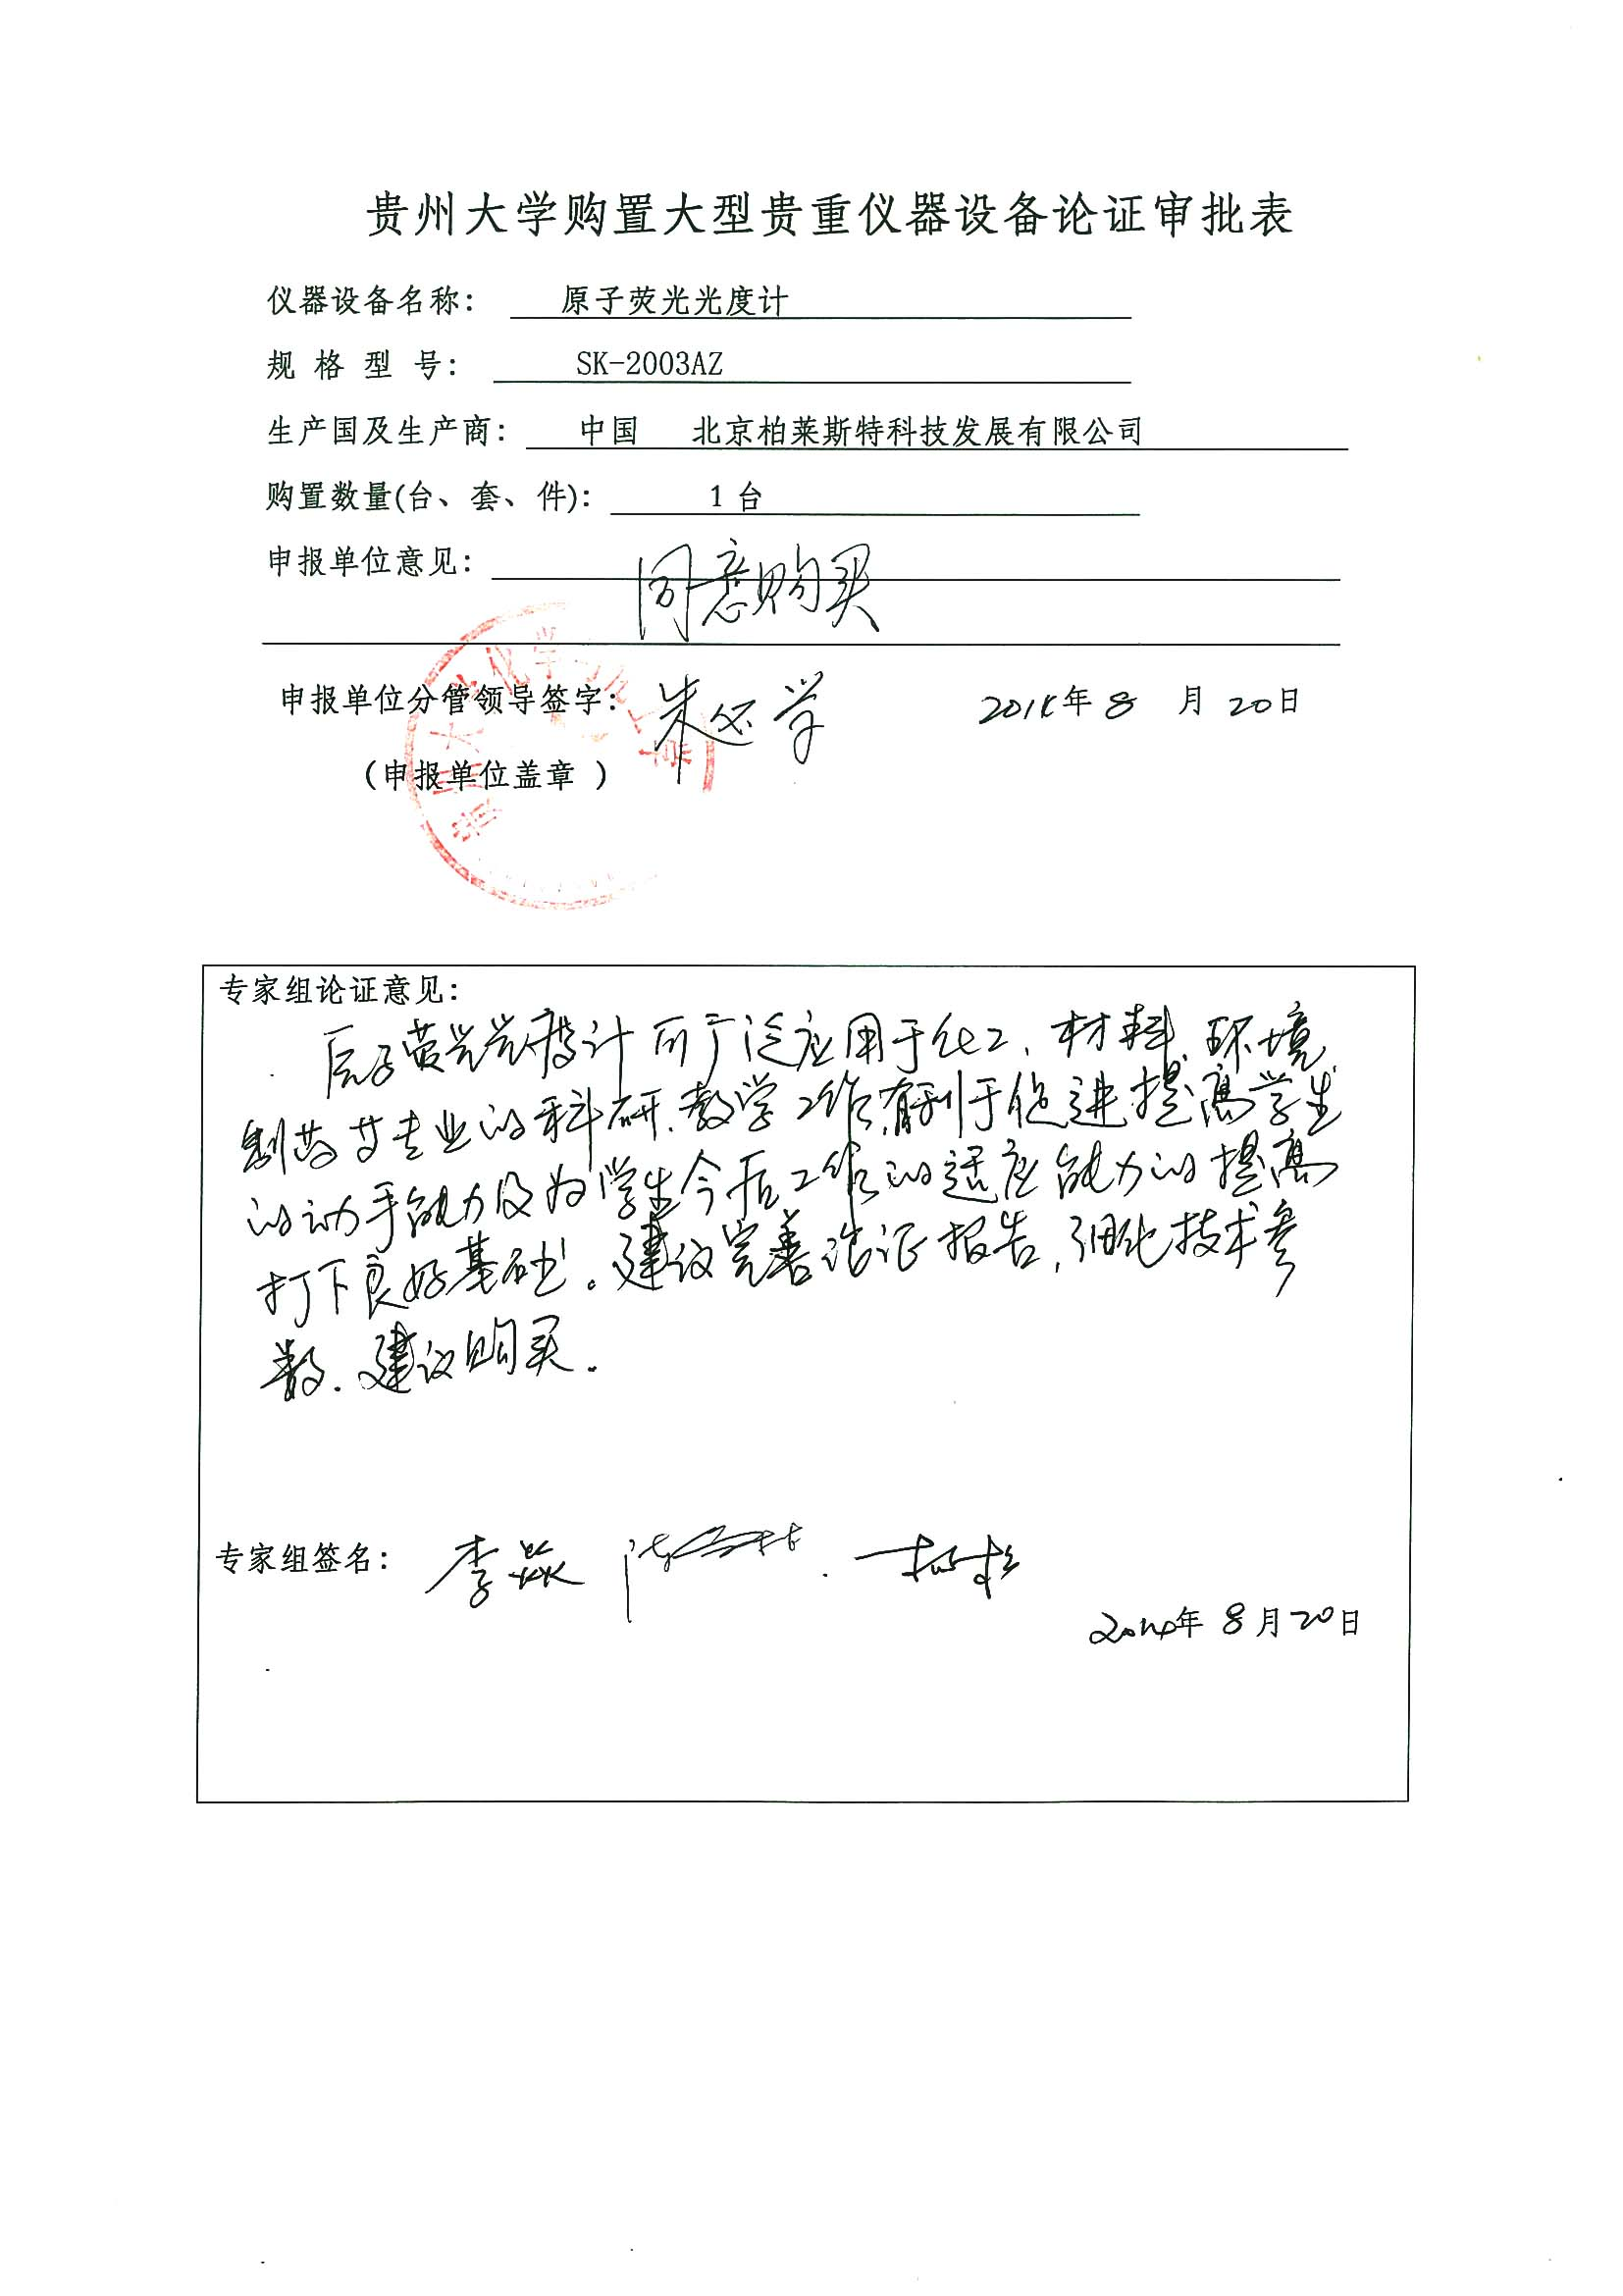 贵州大学购置大型贵重仪器设备论证审批表
仪器设备名称： 原子荧光光度计
规 格 型 号： SK-2003AZ
生产国及生产商： 中国 北京柏莱斯特科技发展有限公司
购置数量(台、套、件)： 1 台
申报单位意见：
同意购买
申报单位分管领导签字： 朱必学 2014年 8 月 20日
（申报单位盖章 ）
专家组论证意见：
原子荧光光度计可广泛应用于化工、材料、环境、
制药等专业的科研、教学工作，有利于促进提高学生
的动手能力及为学生今后工作的适应能力的提高
打下良好基础。建议完善论证报告，细化技术参
数。建议购买。
专家组签名： 李焱
2014年 8月20日